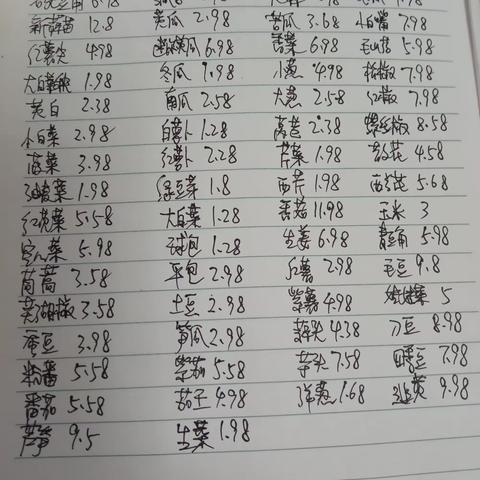 6.98
新蒜苗 12.8 黄瓜 2.98 苦瓜 3.68 小南瓜 7.98
红薯尖 4.98 6.98 香菜 6.98 毛山药 5.98
大白菜 1.98 冬瓜 1.98 小葱 4.98 杭椒 7.98
黄白 2.38 南瓜 2.58 大葱 2.58 红椒 7.98
小白菜 2.98 白萝卜 1.28 莴苣 2.38 螺丝椒 8.58
菠菜 3.98 红萝卜 2.28 芹菜 1.98 花 4.58
油麦菜 1.98 绿豆芽 1.8 西芹 1.98 西兰花 5.68
红苋菜 5.58 大白菜 1.28 香菇 11.98 玉米 3
空心菜 5.98 球包 1.28 生姜 6.98 青豆角 5.98
茼蒿 3.58 平包 2.98 红薯 2.98 毛豆 9.8
美湖椒 3.58 土豆 2.98 紫薯 4.98 5
蚕豆 3.98 笋瓜 2.98 4.38 刀豆 8.98
粉番 5.58 紫茄 5.58 芋头 7.58 豌豆 7.98
番茄 5.58 茄子 4.98 洋葱 1.68 韭黄 9.98
芦笋 9.5 生菜 1.98